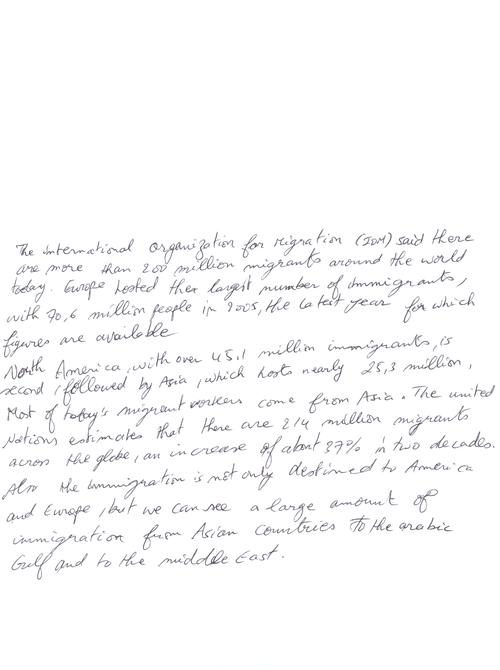 The international organization for Migration (IOM) said there
are more than 200 million migrants around the world
today. Europe hosted ther largest number of immigrants,
with 70,6 million people in 2005, the latest year for which
figures are available
North America, with over 45,1 million immigrants, is
second, followed by Asia, which hosts nearly 25,3 million,
Most of today's migrant workers come from Asia. The united
Nations estimates that there are 214 million migrants
across the globe, an increase of about 37% in two decades.
Also the immigration is not only destined to America
and Europe, but we can see a large amount of
immigration from Asian countries to the arabic
Gulf and to the middle East.